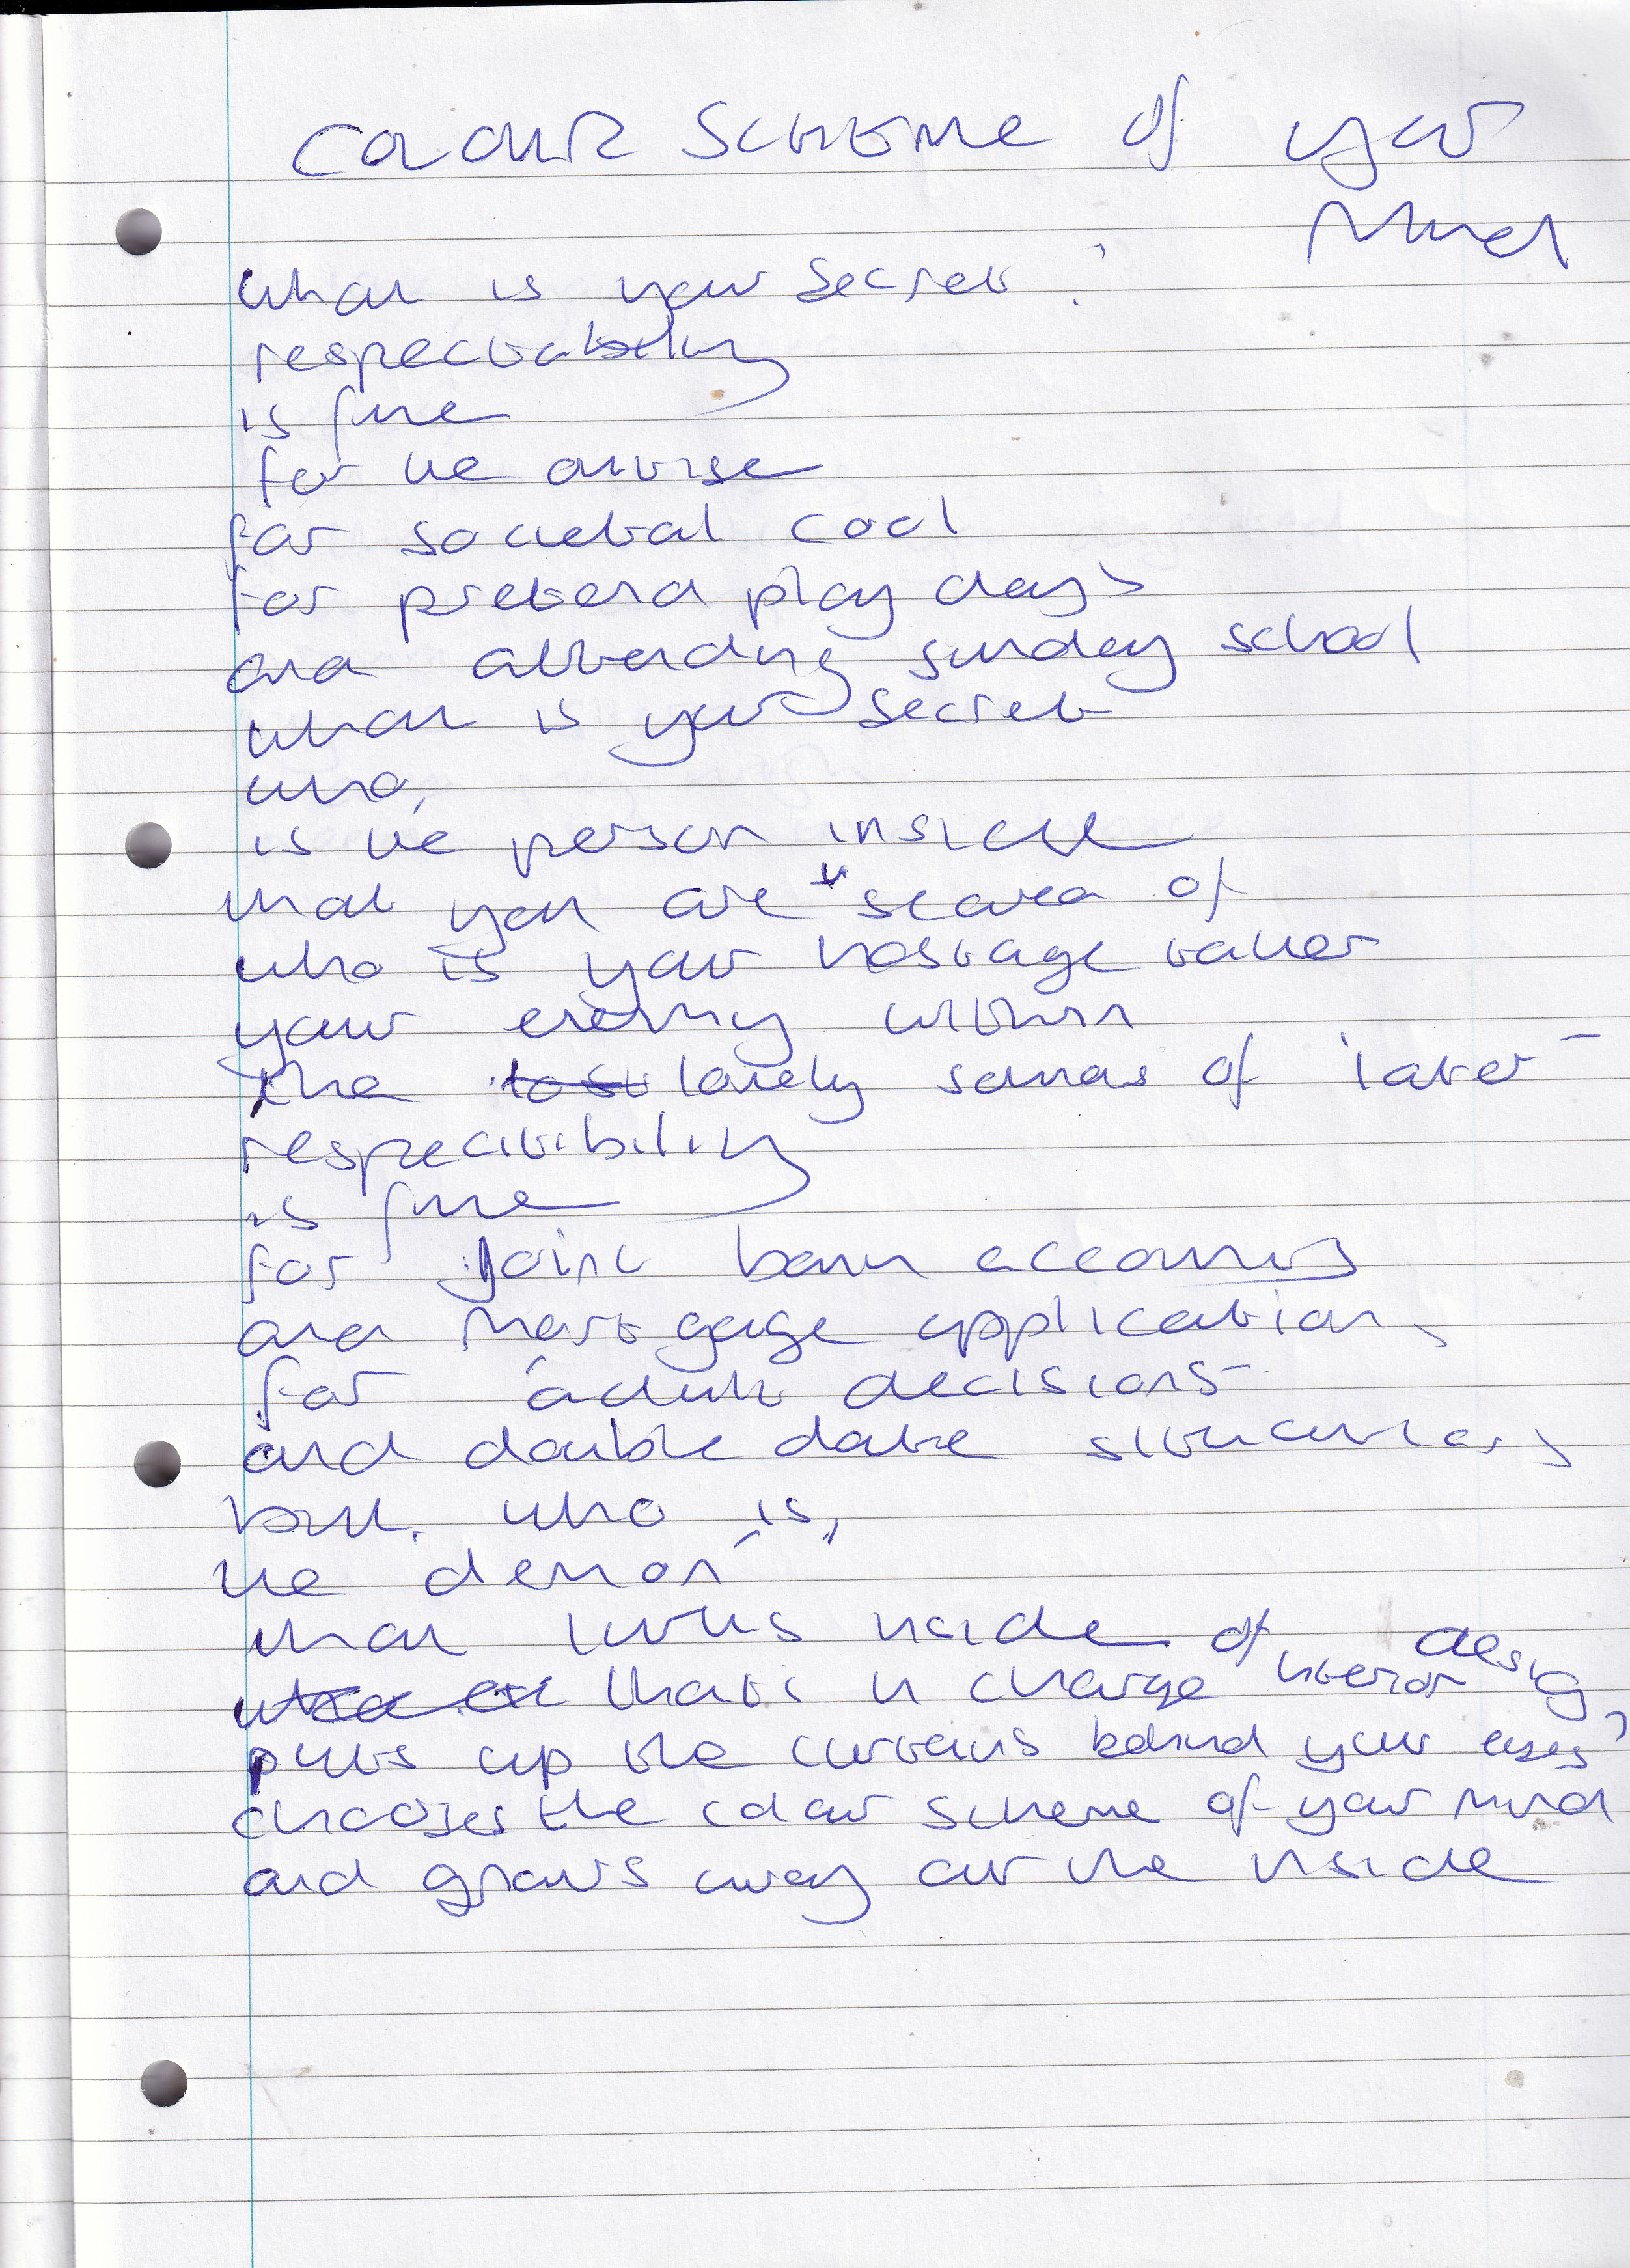 COLOUR SCHEME of your
Mind
what is your secret?
respectability
is fine
for the otherside
for societal cool
for pretend play days
and attending sunday school
what is your secret
who,
is the person inside
that you are scared of
who is your hostage taker
your enemy within
the lost lonely sands of 'later'
respectibility
is fine
for joint bank accounts
and Mortgage applications
for adult decisions
and double date situations
but who is,
the demon
that lurks inside of
that's in charge interior design
puts up the curtains behind your eyes
chooses the colour scheme of your mind
and gnaws away at the inside